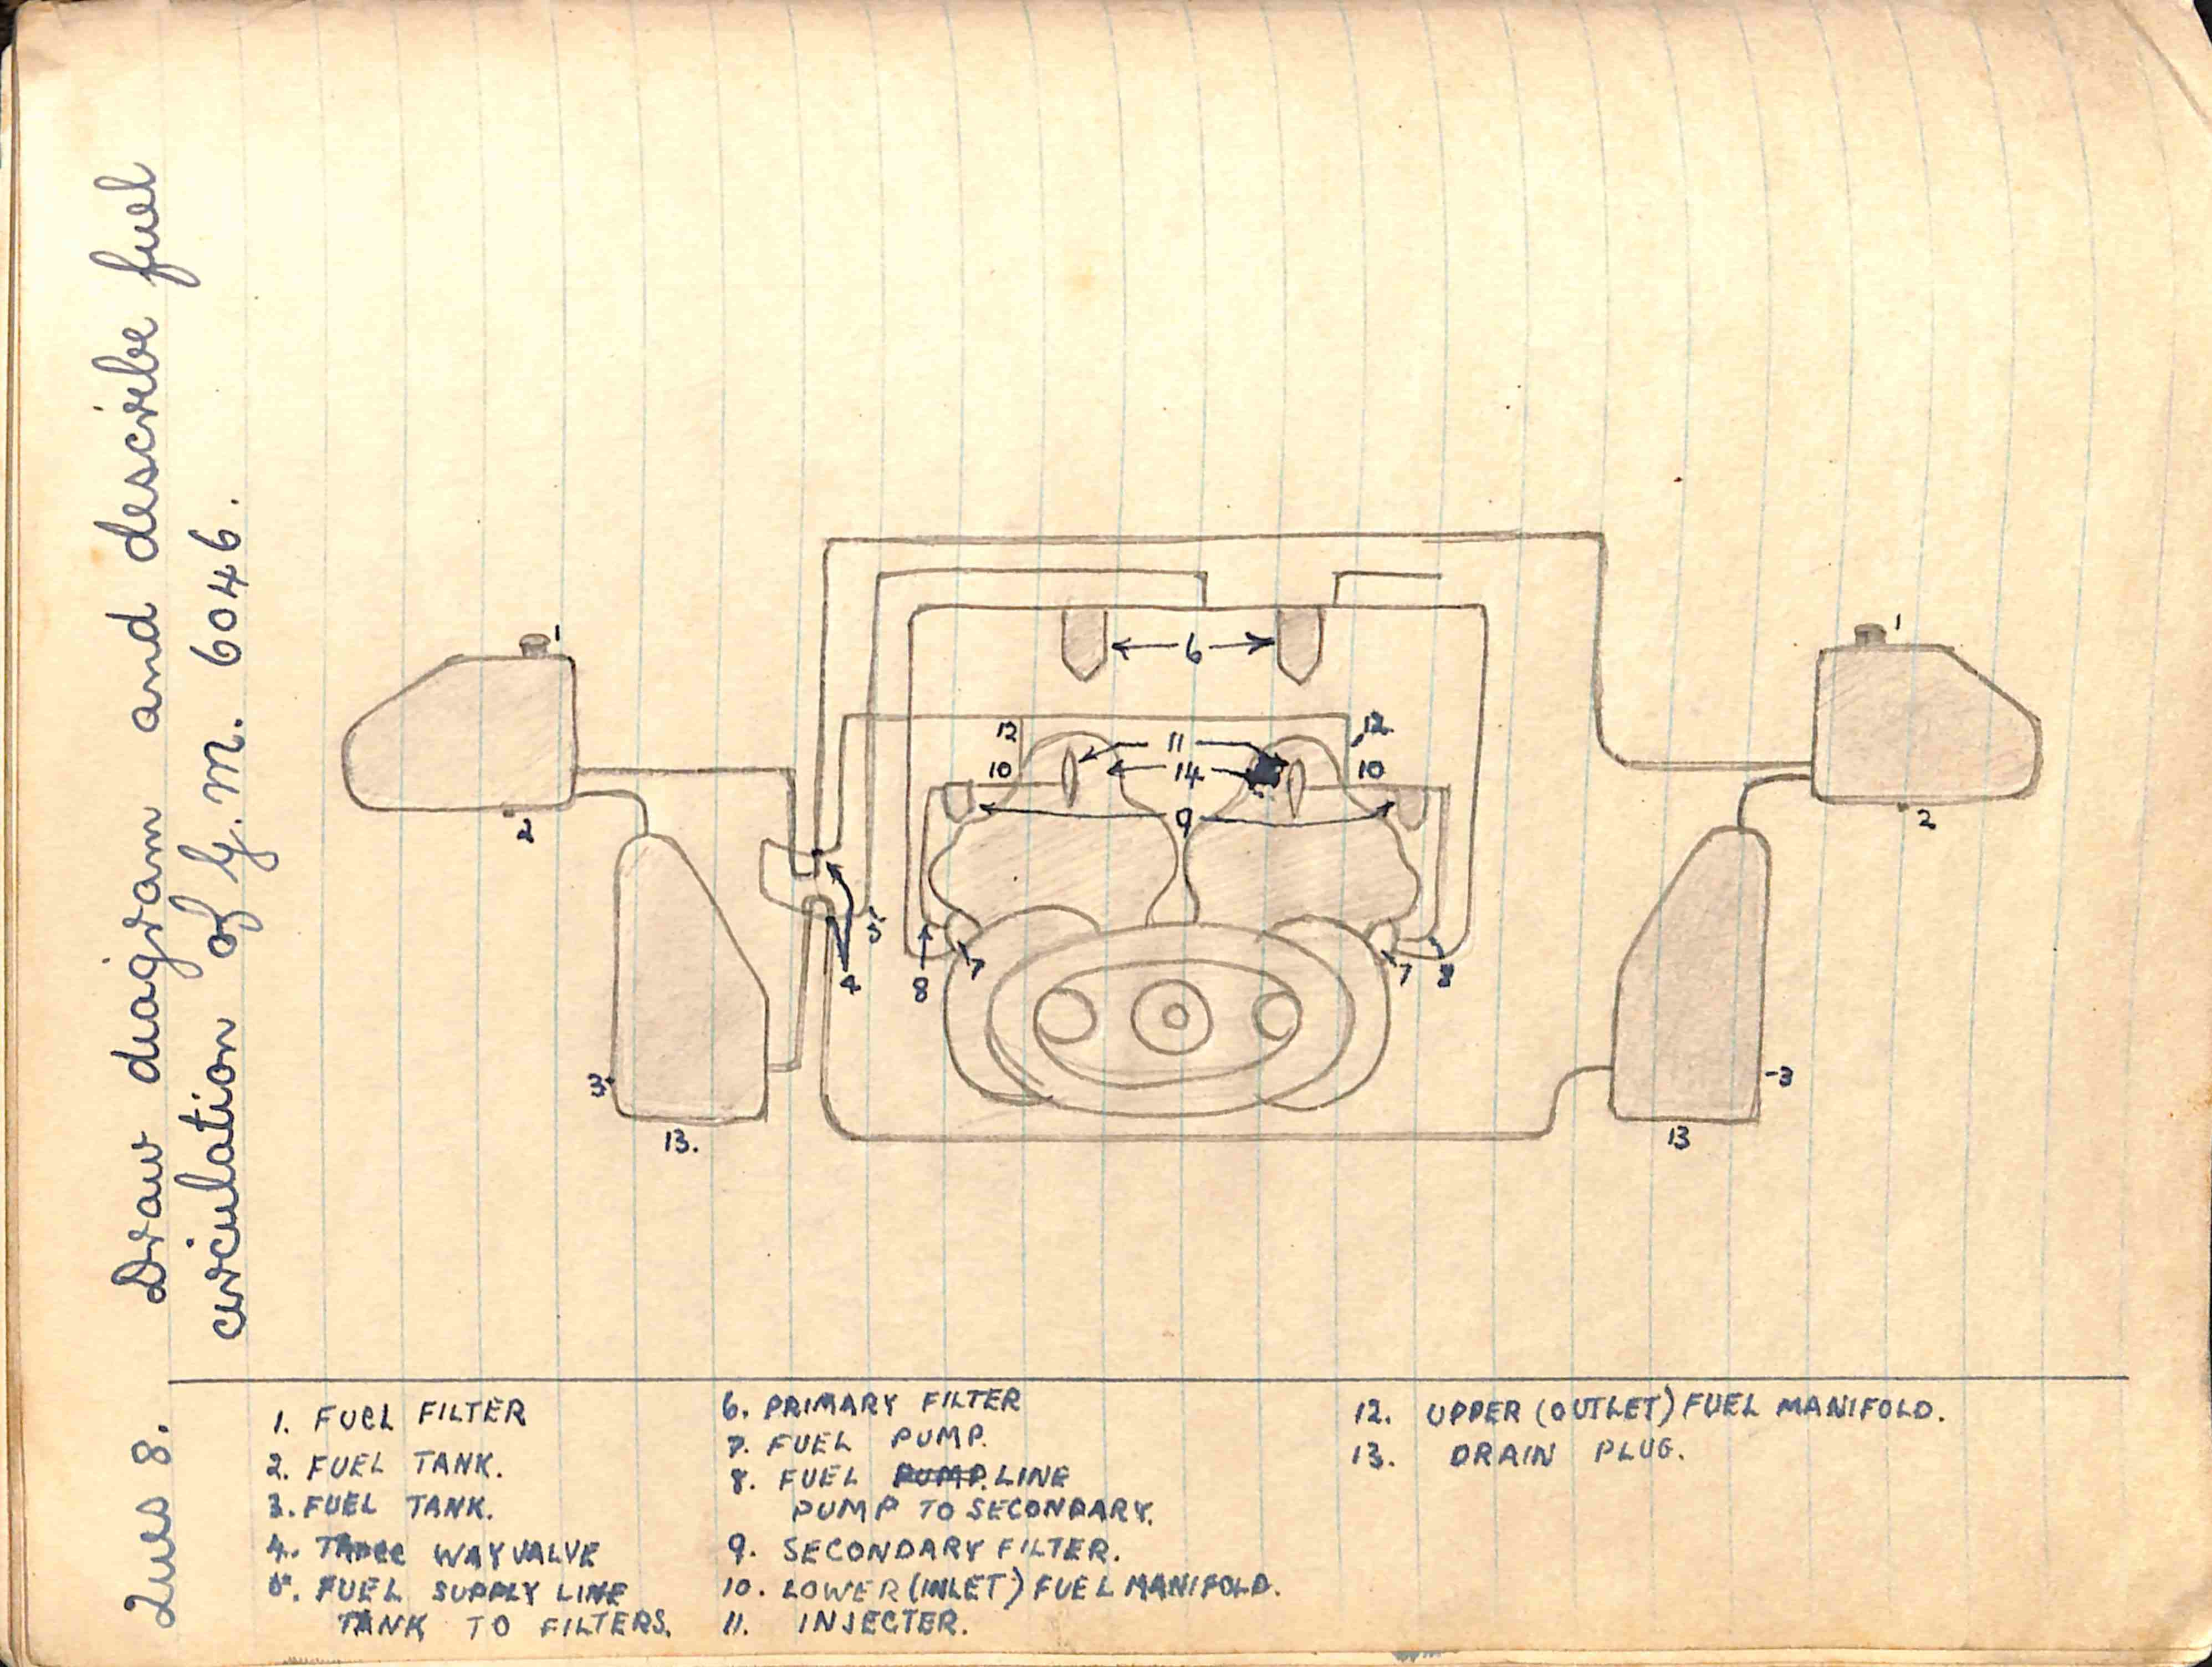 Ques 8. Draw diagram and describe fuel
circulation of G.M. 6046.
1
1
6
12
11
12
10
14
10
9
2
2
5
4
8
7
7
8
3
3
13.
13
1. FUEL FILTER
2. FUEL TANK.
3. FUEL TANK.
4. THREE WAY VALVE
5. FUEL SUPPLY LINE
TANK TO FILTERS.
6. PRIMARY FILTER
7. FUEL PUMP.
8. FUEL PUMP. LINE
PUMP TO SECONDARY.
9. SECONDARY FILTER.
10. LOWER (INLET) FUEL MANIFOLD.
11. INJECTER.
12. UPPER (OUTLET) FUEL MANIFOLD.
13. DRAIN PLUG.